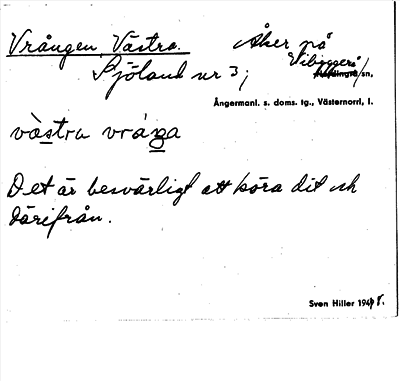 Vrången, Västra. Åker på
Sjöland nr 3, Vibyggerå sn.
Ångermanl. s. doms. tg., Västernorrl. l.
västra vråŋa
Det är besvärligt att köra dit och
därifrån.
Sven Hiller 194